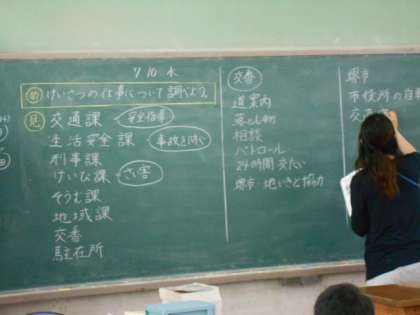 7 10 水
め けいさつの仕事について調べよう。
見 交通課 安全指導
生活安全課 事故を防ぐ
刑事課
けいび課 さい害
そうむ課
地域課
交番
駐在所
交番
道案内
落とし物
相談
パトロール
24時間交たい
堺市・地いきと協力
堺市
市役所の自動
交